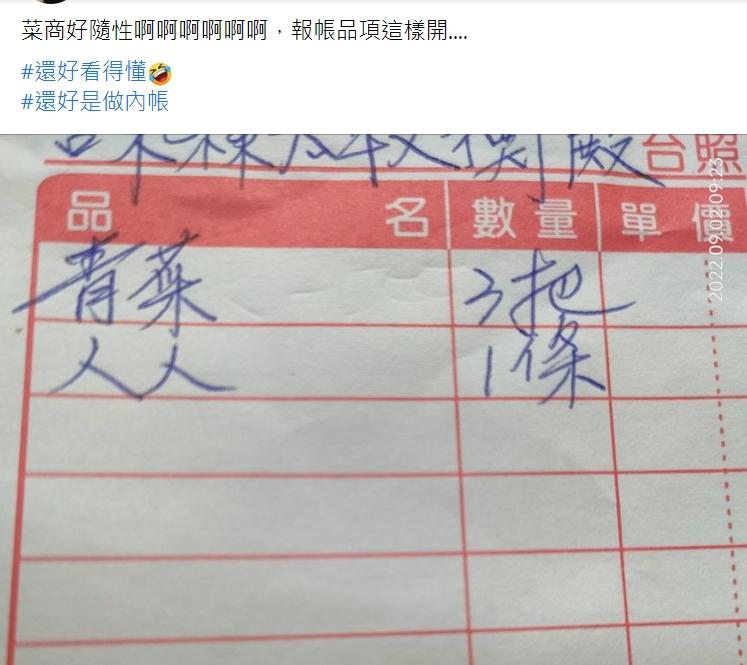 菜商好隨性啊啊啊啊啊啊，報帳品項這樣開....
#還好看得懂🤣
#還好是做內帳
殿 台照
品 名 數量 單價
青菜 3把
人人 1條
2022.09.02 09:23